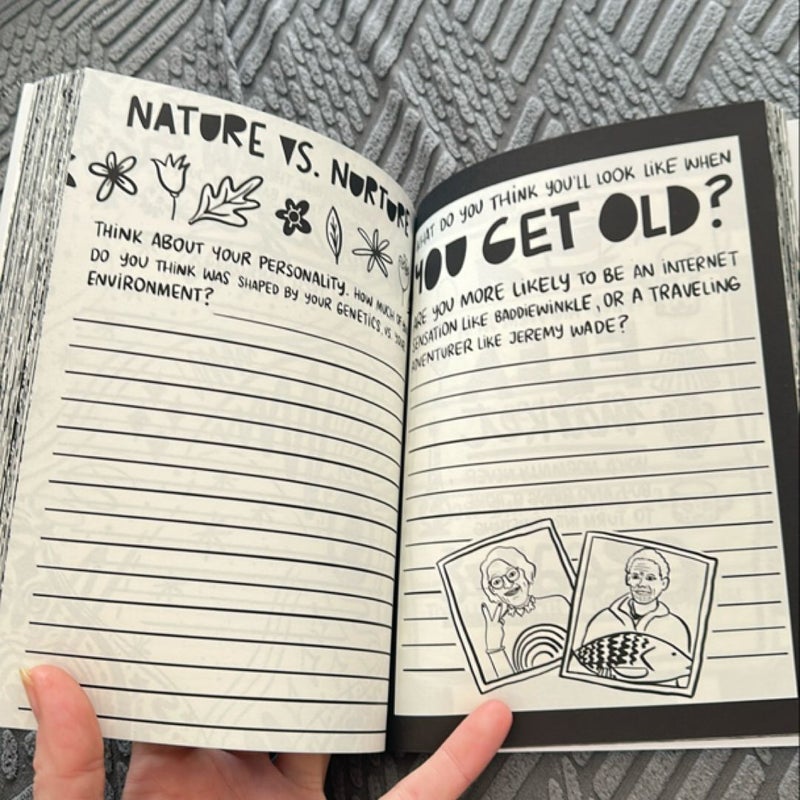 NATURE VS. NURTURE
THINK ABOUT YOUR PERSONALITY. HOW MUCH OF
DO YOU THINK WAS SHAPED BY YOUR GENETICS, VS.
ENVIRONMENT?
WHAT DO YOU THINK YOU'LL LOOK LIKE WHEN
YOU GET OLD?
ARE YOU MORE LIKELY TO BE AN INTERNET
SENSATION LIKE BADDIEWINKLE, OR A TRAVELING
ADVENTURER LIKE JEREMY WADE?